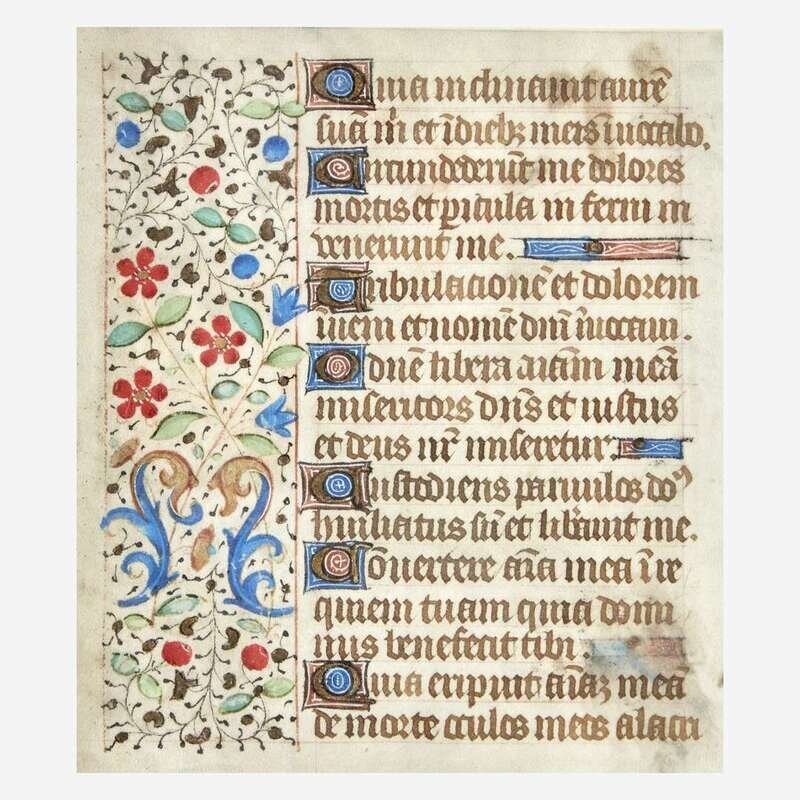 Quia inclinauit aurē
suā m̄ et ī diebꝫ meis īuocabo.
Circundederūt me dolores
mortis et ꝑicula inferni in
uenerunt me.
Tribulacionē et dolorem
īueni et nomē dn̄i īuocaui.
O dn̄e libera aīam meā
misericors dn̄s et iustus
et deus nr̄ miseretur.
Custodiens paruulos do⁹
humiliatus sū et liƀauit me.
Cōuertere aīa mea ī re
quiem tuam quia domi
nus benefecit tibi.
Quia eripuit aīaꝫ meā
de morte oculos meos a lacri